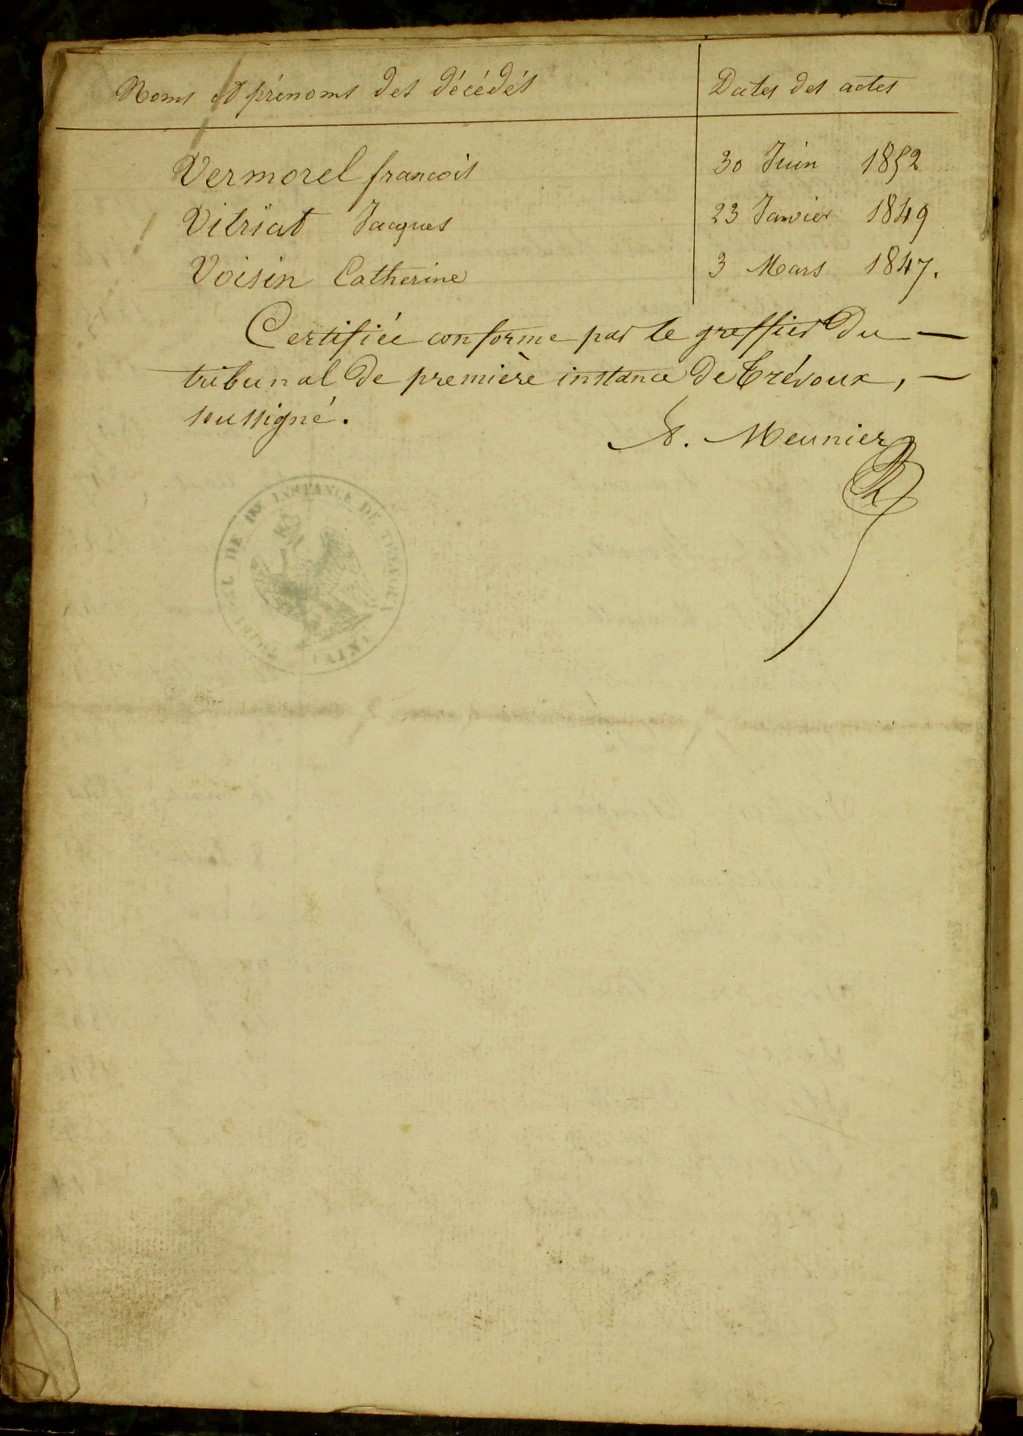 Noms et prénoms des décédés Dates des actes
Vermorel francois 30 Juin 1852
Vitriat Jacques 23 Janvier 1849
Voisin Catherine 3 Mars 1847.
Certifiée conforme par le greffier du —
tribunal de première instance de Trévoux, —
soussigné.
Meunier
DE INSTANCE DE